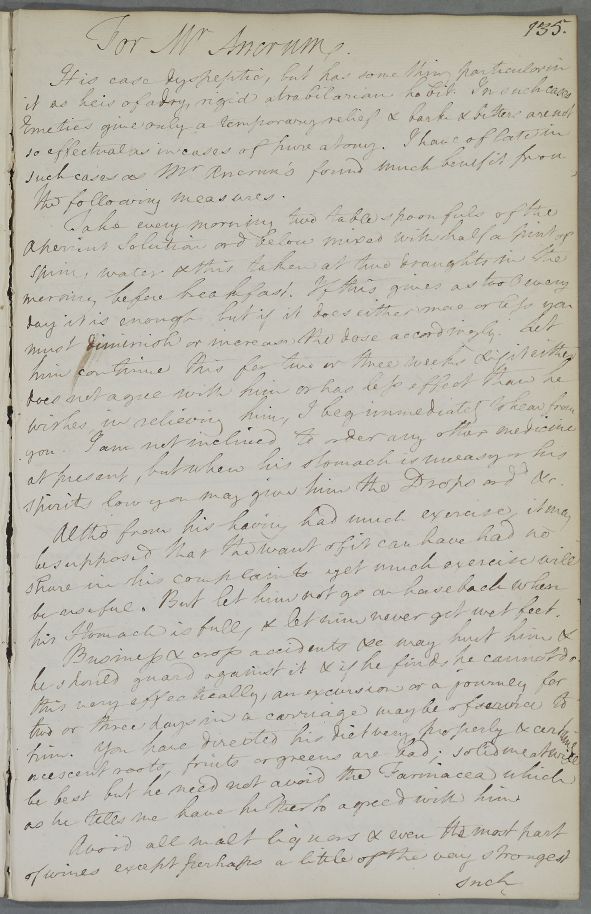 135.
For Mr Ancrum.
His case dyspeptic, but has something particular in
it as he is of a dry, rigid atrabilarian habit. In such cases
Emetics give only a temporary relief & bark & bitters are not
so effectual as in cases of pure atony. I have of late in
such cases as Mr Ancrum's found much benefit from
the following measures.
Take every morning two tablespoonfuls of the
aperient Solution ord below mixed with half a pint of
water & this taken at two draughts in the
morning before breakfast. If this gives a stool every
day it is enough but if it does either more or less you
must diminish or increase the dose accordingly. Let
him continue this for two or three weeks & if it either
does not agree with him or has less effect than he
wishes in relieving him, I beg immediately to hear from
you. I am not inclined to order any other medicine
at present, but when his stomach is uneasy or his
spirits low you may give him the Drops ord &c.
Altho from his having had much exercise, it may
be supposed that the want of it can have had no
share in his complaints yet much exercise will
be useful. But let him not go on horseback when
his Stomach is full, & let him never get wet feet.
Business & cross accidents &c may hurt him &
he should guard against it & if he finds he cannot do
this very effectually, an excursion or a journey for
two or three days in a carriage may be of service to
him. You have directed his diet very properly & certainly
acescent roots, fruits or greens are bad; solid meat will
be best but he need not avoid the Farinacea which
as he tells me have hitherto agreed with him
Avoid all malt liquors & even the most part
of wines except perhaps a little of the very strongest
such